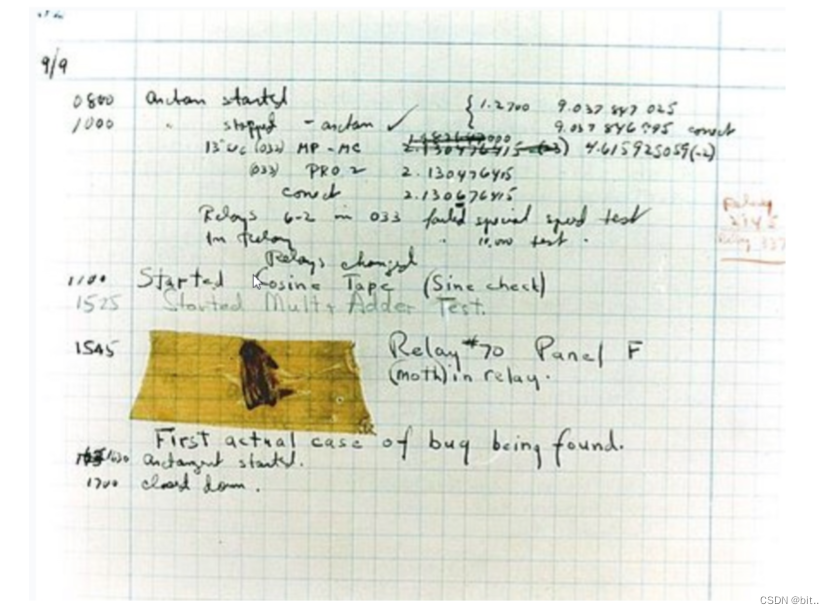 9/9
0800 Antan started
1000 " stopped - antan ✓ { 1.2700 9.037 847 025
9.037 846 995 correct
13" uc (032) MP - MC 2.130476415 (-3) 4.615925059 (-2)
(033) PRO 2 2.130476415
correct 2.130676415
Relays 6-2 in 033 failed special speed test
In Relay " 10,000 test .
Relays changed
Relay
1100 Started Cosine Tape (Sine check)
1525 Started Mult + Adder Test.
1545 Relay #70 Panel F
(moth) in relay.
First actual case of bug being found.
1630 antangent started.
1700 closed down.
CSDN @bit..